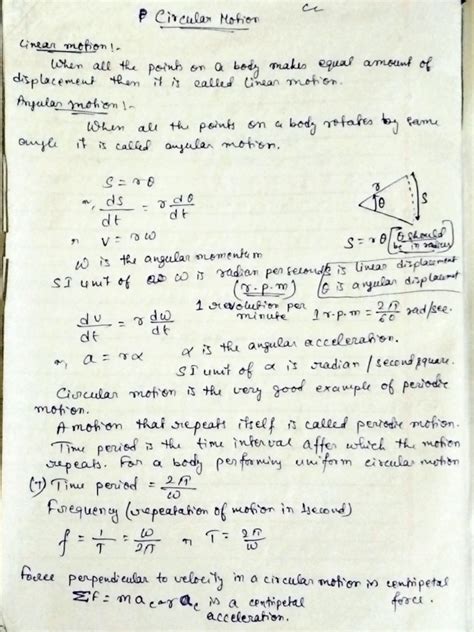 Circular Motion
Linear motion!-
When all the points on a body makes equal amount of
displacement then it is called linear motion.
Angular motion!-
When all the points on a body rotates by same
angle it is called angular motion.
S = rθ
r θ S
dS/dt = r dθ/dt
v = rω
S = rθ [θ should be in radius
ω is the angular momentum
S is linear displacement
SI unit of ω is radian per second
θ is angular displacement
(r.p.m)
dv/dt = r dω/dt
1 revolution per minute
1 r.p.m = 2π/60 rad/sec.
or, a = rα
α is the angular acceleration.
SI unit of α is radian / second square.
Circular motion is the very good example of periodic
motion.
A motion that repeats itself is called periodic motion.
Time period is the time interval after which the motion
repeats. For a body performing uniform circular motion
(T) Time period = 2π/ω
Frequency (repeatation of motion in 1 second)
f = 1/T = ω/2π or T = 2π/ω
Force perpendicular to velocity in a circular motion is centipetal
force.
ΣF = mac or ac is a centipetal
acceleration.